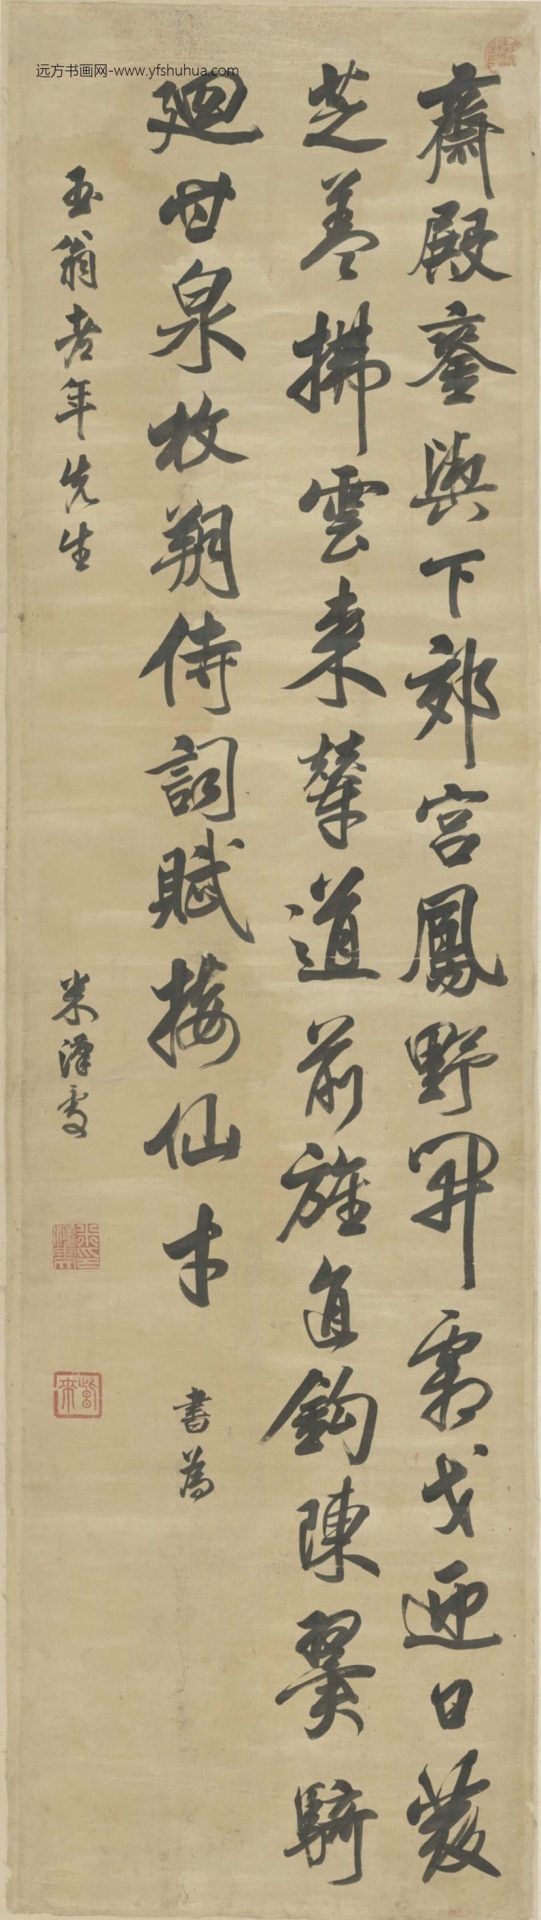 齋殿鑾輿下郊宮鳳野開霜戈迎日麗
芝蓋拂雲來輦道前旌直鈎陳翼騎
廻甘泉枚朔侍詞賦接仙才
書為
玉翁老年先生
米漢雯
远方书画网-www.yfshuhua.com